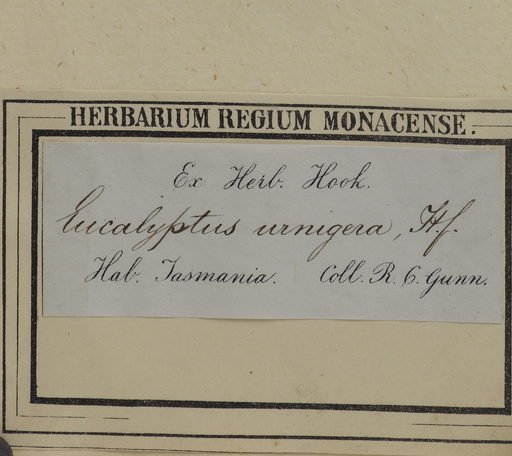 HERBARIUM REGIUM MONACENSE.
Ex Herb. Hook.
Eucalyptus urnigera, H.f.
Hab. Tasmania. Coll. R. C. Gunn.